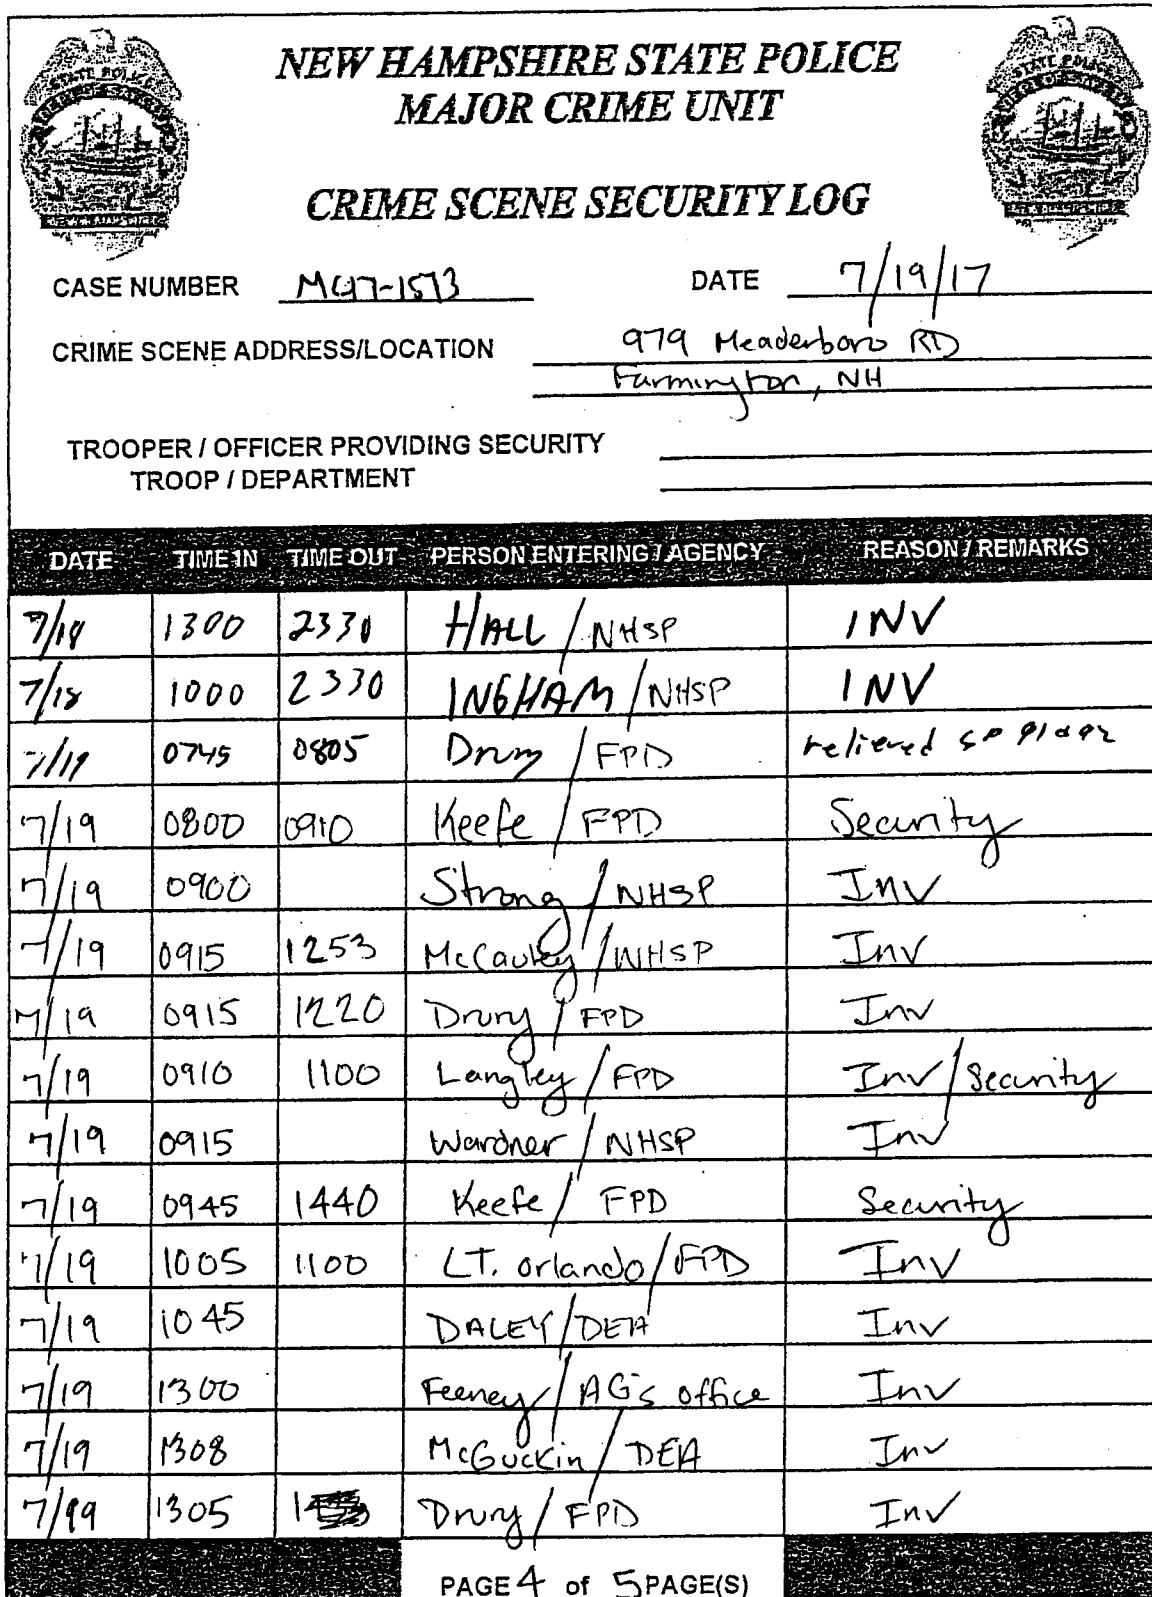 NEW HAMPSHIRE STATE POLICE
MAJOR CRIME UNIT
CRIME SCENE SECURITY LOG
CASE NUMBER DATE 7/19/17
CRIME SCENE ADDRESS/LOCATION 979 Meaderboro RD
Farmington, NH
TROOPER / OFFICER PROVIDING SECURITY
TROOP / DEPARTMENT
DATE TIME IN TIME OUT PERSON ENTERING / AGENCY REASON / REMARKS
7/18 1300 2330 HALL / NHSP INV
7/18 1000 2330 INGHAM / NHSP INV
7/19 0745 0805 Drury / FPD relieved
7/19 0800 0910 Keefe / FPD Security
7/19 0900 Strong / NHSP Inv
7/19 0915 1253 McCauley / NHSP Inv
7/19 0915 1220 Drury / FPD Inv
7/19 0910 1100 Langley / FPD Inv / Security
7/19 0915 Wardner / NHSP Inv
7/19 0945 1440 Keefe / FPD Security
7/19 1005 1100 LT. Orlando / FPD Inv
7/19 1045 DALEY / DEA Inv
7/19 1300 Feeney / AG's office Inv
7/19 1308 McGuckin / DEA Inv
7/19 1305 Drury / FPD Inv
PAGE 4 of 5 PAGE(S)